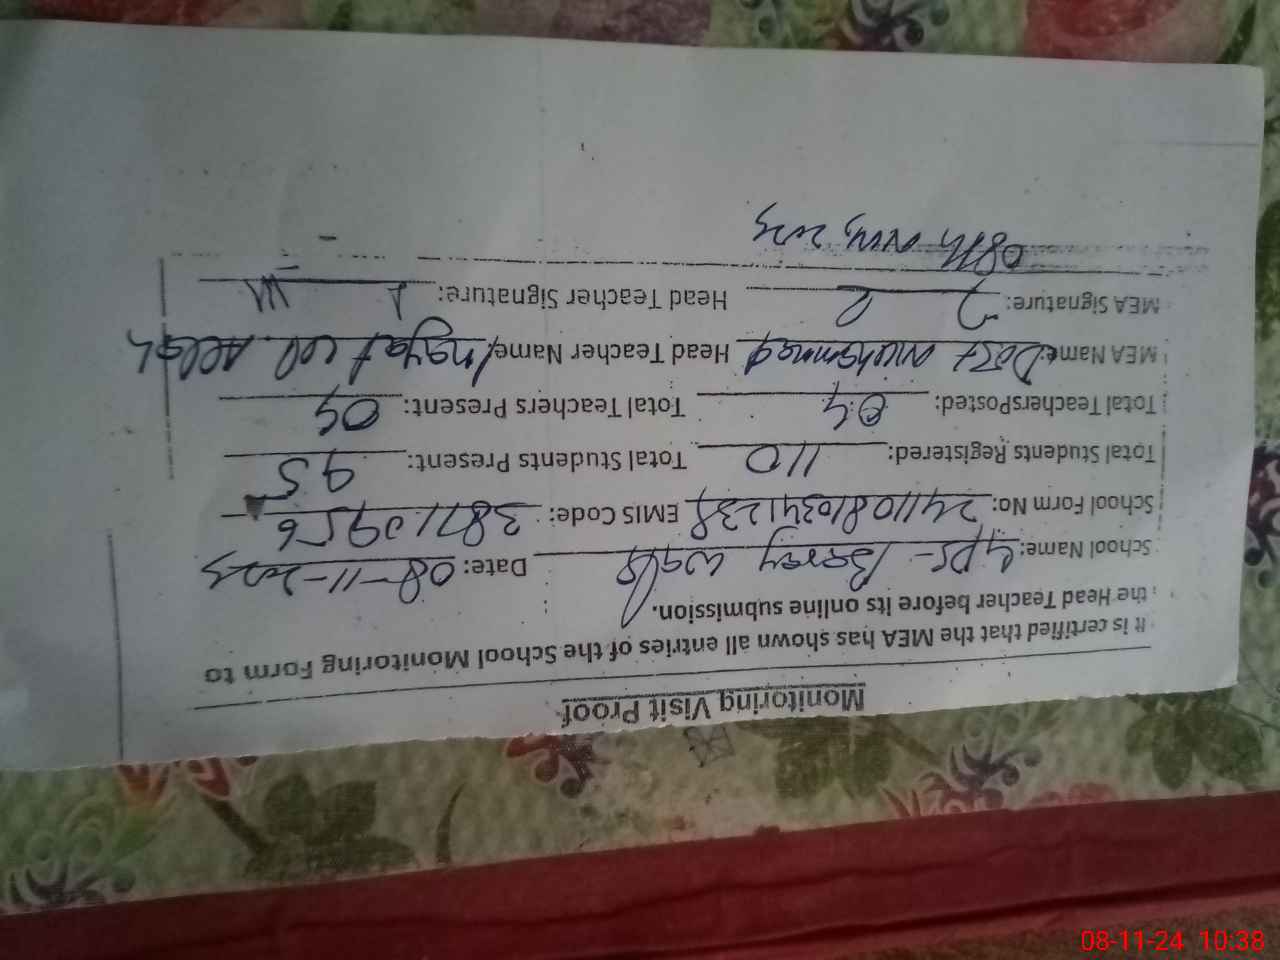 Monitoring Visit Proof
It is certified that the MEA has shown all entries of the School Monitoring Form to
the Head Teacher before its online submission.
School Name: GPS- Baray wala Date: 08-11-2024
School Form No: 241108103411238 EMIS Code: 38711
Total Students Registered: 110 Total Students Present: 95
Total TeachersPosted: 04 Total Teachers Present: 04
MEA Name: Dost Muhammad Head Teacher Name: Inayat
MEA Signature: Head Teacher Signature:
08th Nov, 2024
08-11-24 10:38